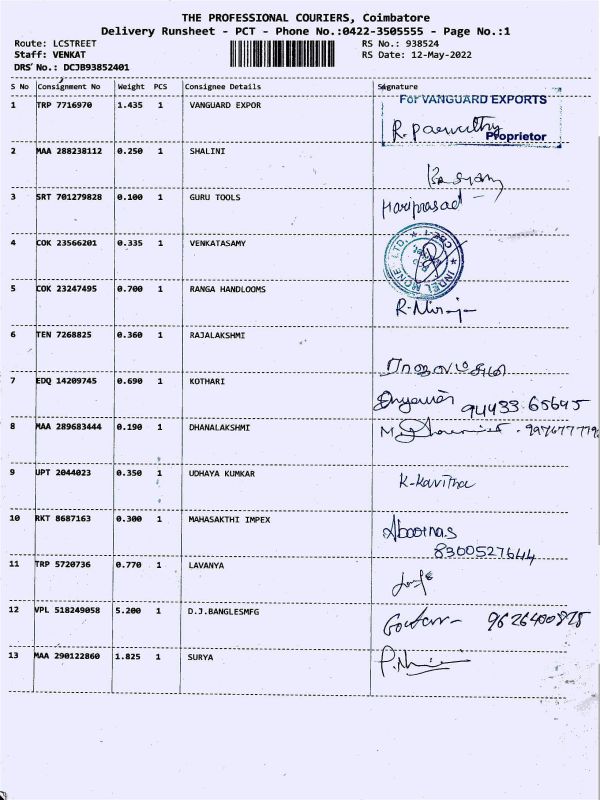 THE PROFESSIONAL COURIERS, Coimbatore
Delivery Runsheet - PCT - Phone No.:0422-3505555 - Page No.:1
Route: LCSTREET RS No.: 938524
Staff: VENKAT RS Date: 12-May-2022
DRS No.: DCJB93852401
S No Consignment No Weight PCS Consignee Details Signature
1 TRP 7716970 1.435 1 VANGUARD EXPOR
For VANGUARD EXPORTS
R. Paewathy
Proprietor
2 MAA 288238112 0.250 1 SHALINI
3 SRT 701279828 0.100 1 GURU TOOLS Hariprasad
4 COK 23566201 0.335 1 VENKATASAMY
5 COK 23247495 0.700 1 RANGA HANDLOOMS
6 TEN 7268825 0.360 1 RAJALAKSHMI
7 EDQ 14209745 0.690 1 KOTHARI
94433 65645
8 MAA 289683444 0.190 1 DHANALAKSHMI
9 UPT 2044023 0.350 1 UDHAYA KUMKAR K-Kavitha
10 RKT 8687163 0.300 1 MAHASAKTHI IMPEX
8300527644
11 TRP 5720736 0.770 1 LAVANYA
12 VPL 518249058 5.200 1 D.J.BANGLESMFG
13 MAA 290122860 1.825 1 SURYA